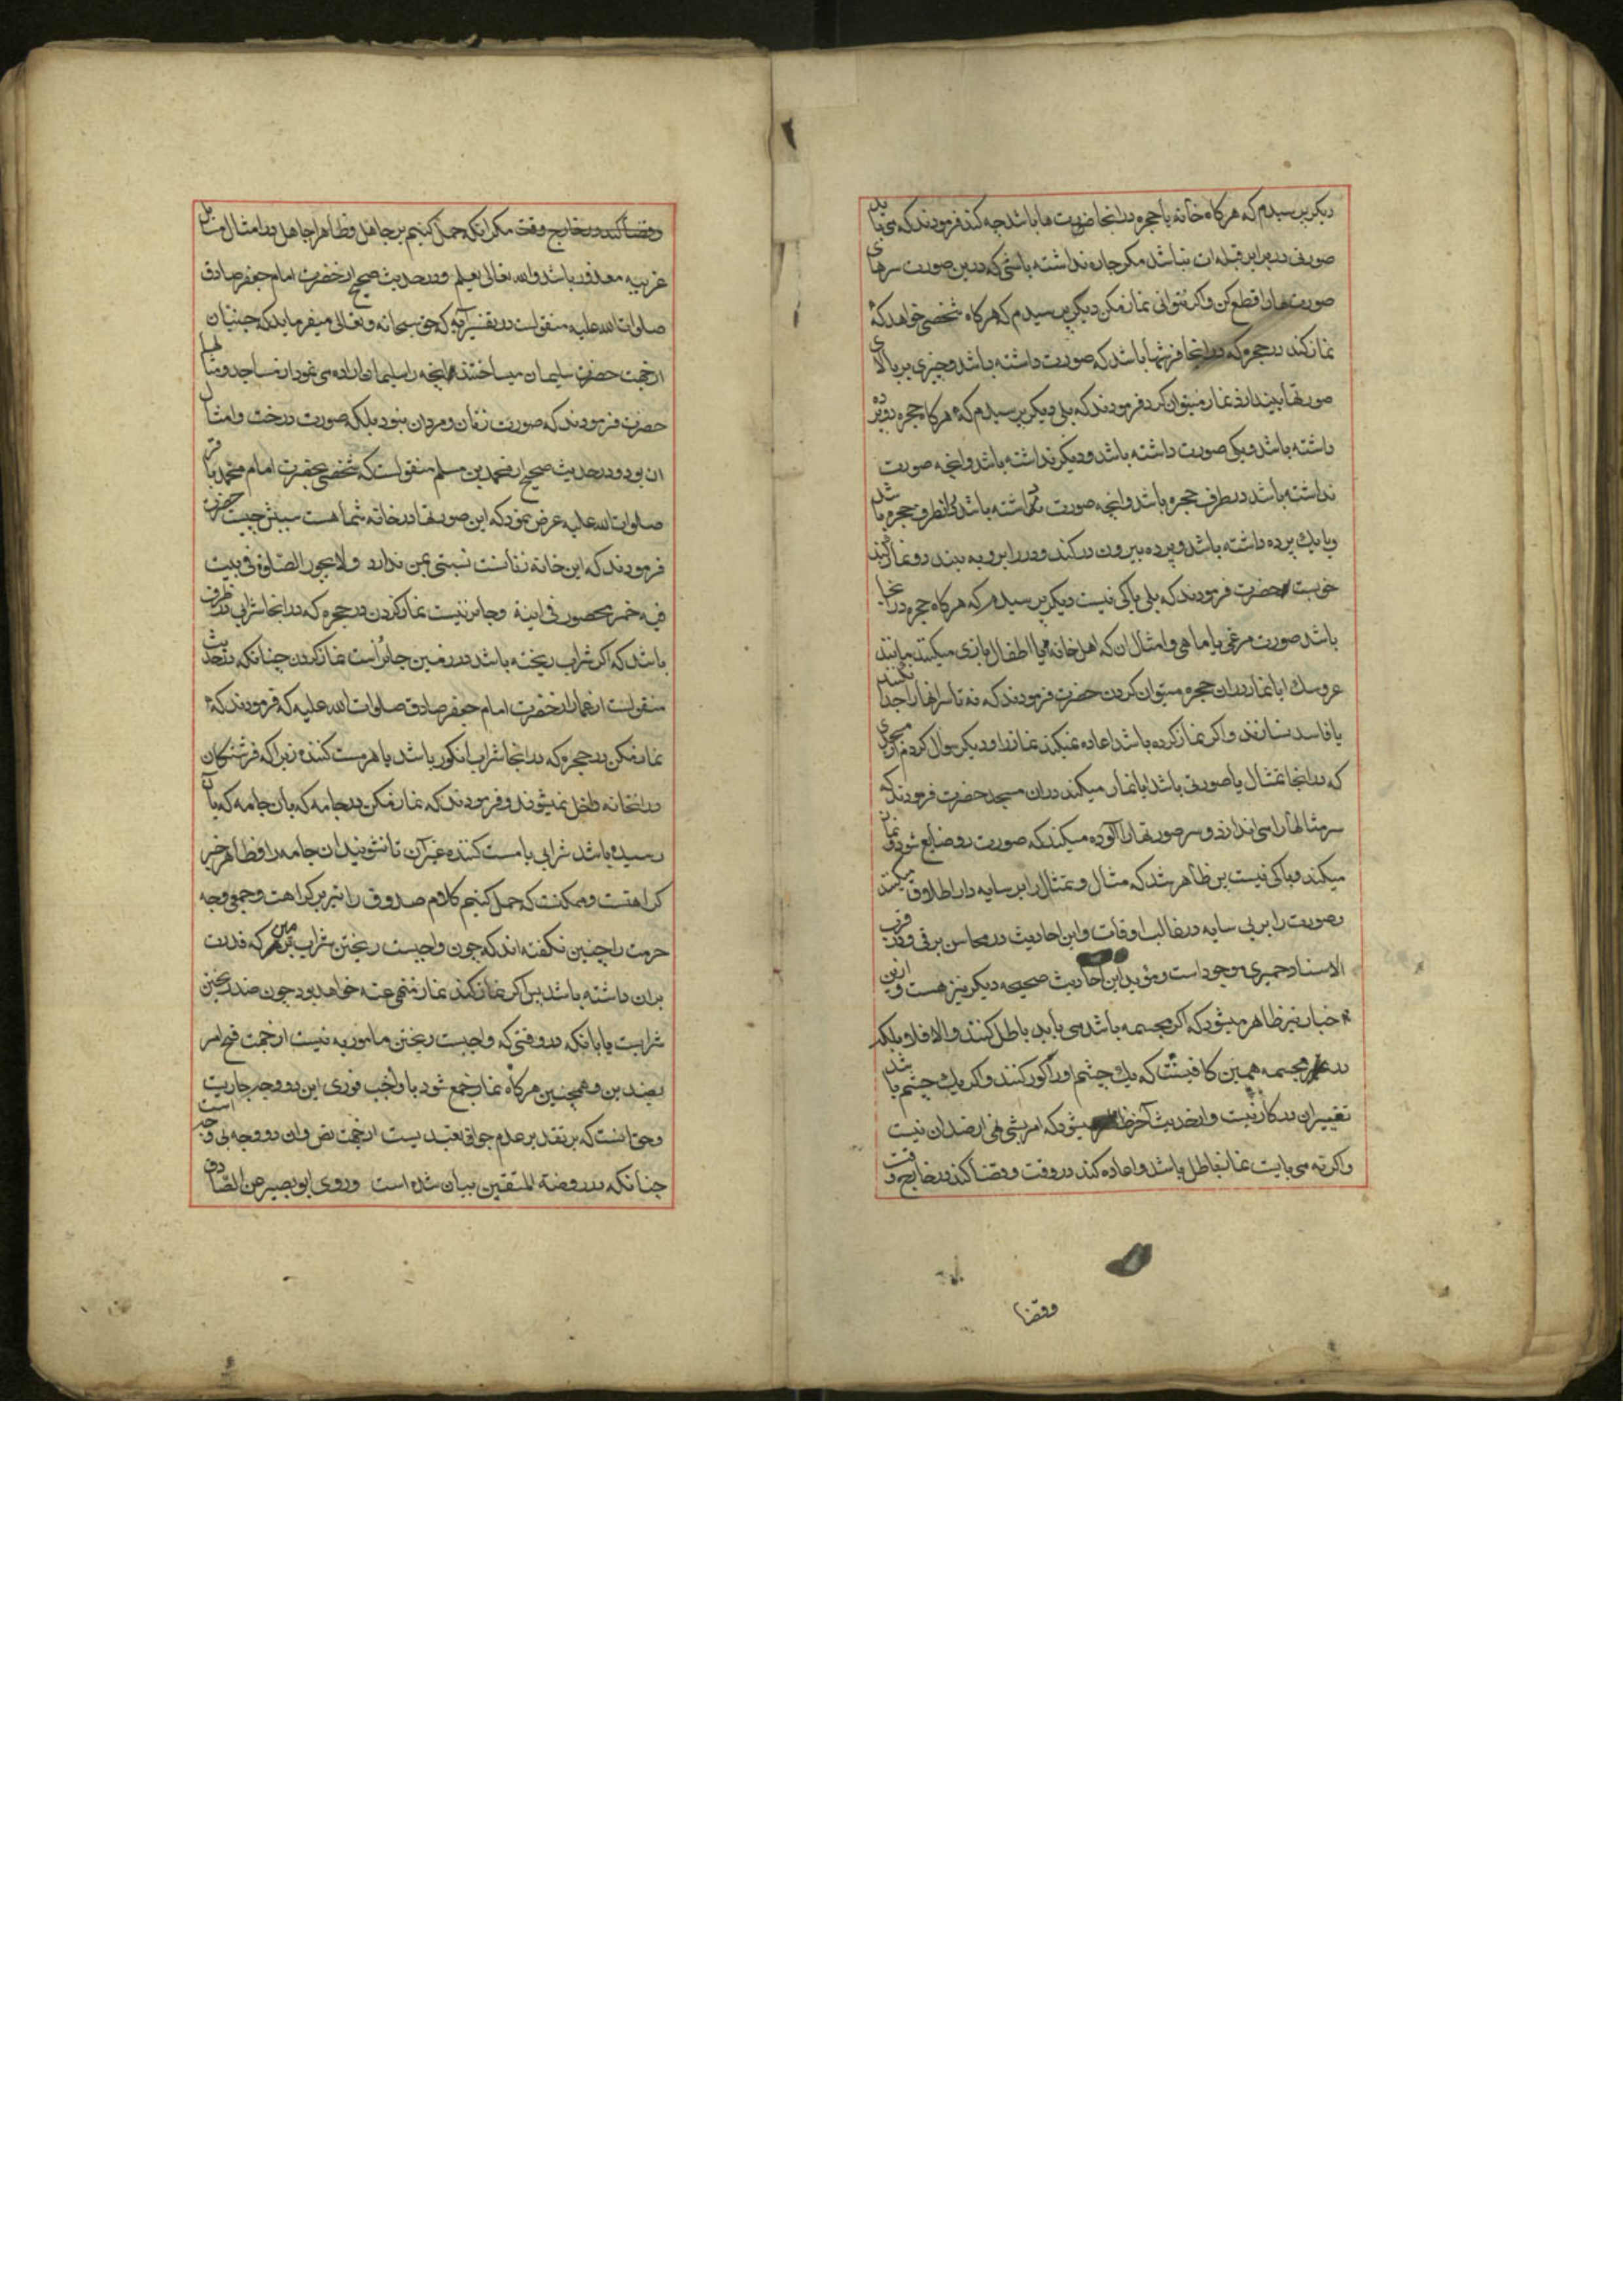 دیکر پرسیدم که هرکاه خانه یا حجره در انجا صورت ها باشد چه کند فرمودند که می باید
صورتی در برابر قبله ات نباشد مکر چاره نداشته باشی که درین صورت سرهای
صورت ها را قطع کن و اکر نتوانی نماز مکن دیکر پرسیدم که هرکاه شخصی خواهد که
نماز کند در حجره که در انجا فرشها باشد که صورت داشته باشد و چیزی بر بالای
صورتها بیندازد نماز میتوان کرد فرمودند که بلی دیکر پرسیدم که هرکاه حجره دو پرده
داشته باشد و یکی صورت داشته باشد و دیکر نداشته باشد و انچه صورت
نداشته باشد در طرف حجره باشد و انچه صورت داشته باشد از انطرف حجره باشد
و یا یک پرده داشته باشد و پرده بیرون در کند و در را برو به بندد و نماز کند
خوبست حضرت فرمودند که بلی باکی نیست دیکر پرسیدم که هرکاه حجره در انجا
باشد صورت مرغی یا ماهی و امثال ان که اهل خانه یا اطفال بازی میکنند مانند
عروسک ایا نماز در ان حجره میتوان کردن حضرت فرمودند که نه تا سر انها را جدا نکنند
یا فاسد نسازند و اکر نماز کرده باشد اعاده نمیکند نماز را و دیکر سوال کردم از مسجدی
که در انجا تمثال یا صورتی باشد ایا نماز میکند در ان مسجد حضرت فرمودند که
سر مثالها را می اندازد و سر صورتها را الوده میکند که صورت رو ضایع شود و نماز
میکند و باکی نیست پس ظاهر شد که مثال و تمثال را بر سایه دار اطلاق میکنند
و صورت را بر بی سایه در غالب اوقات و این احادیث در محاسن برقی و در قرب
الاسناد حمیری موجود است و موید این احادیث صحیحه دیکر نیز هست و ازین
اخبار نیز ظاهر میشود که اکر مجسمه باشد می باید باطل کنند و الا فلا و بلکه
در غیر مجسمه همین کافیست که یک چشم او را کور کنند و اکر یک چشم باشد
تغییر ان در کار نیست و از حدیث آخر ظاهر میشود که امر بشی نهی از ضد ان نیست
و اکر نه می بایست نماز باطل باشد و اعاده کند در وقت و قضا کند در خارج وقت
و قضا
و قضا کند در خارج وقت مکر انکه حمل کنیم بر جاهل و ظاهرا جاهل در امثال مسایل
غریبه معذور باشد والله تعالی یعلم و در حدیث صحیح از حضرت امام جعفر صادق
صلوات الله علیه منقولست در تفسیر آیه که حق سبحانه و تعالی میفرماید که جنیان
از جهت حضرت سلیمان میساختند انچه را سلیمان اراده می نمود از مساجد و مثالها
حضرت فرمودند که صورت زنان و مردان نبود بلکه صورت درخت و امثال
ان بود و در حدیث صحیح از محمد بن مسلم منقولست که شخصی بحضرت امام محمد باقر
صلوات الله علیه عرض نمود که این صورتها در خانه شما هست سببش چیست حضرت
فرمودند که این خانه زنانست نسبتی بمن ندارد ولا یجوز الصلوة فی بیت
فیه خمر محصور فی انیة و جایز نیست نماز کردن در حجره که در انجا شرابی در ظرف
باشد که اکر شراب ریخته باشد در زمین جایز است نماز کردن چنانکه در حدیث
منقولست از عمار از حضرت امام جعفر صادق صلوات الله علیه که فرمودند که
نماز مکن در حجره که در انجا شراب انکور باشد یا هر مست کننده زیرا که فرشتکان
در انخانه داخل نمیشوند و فرمودند که نماز مکن در جامه که بان جامه که بان
رسیده باشد شرابی یا مست کننده غیر آن تا نشویند ان جامه را و ظاهر خبر
کراهتست و ممکنست که حمل کنیم کلام صدوق را نیز بر کراهت و جمعی وجه
حرمت را چنین نکفته اند که چون واجبست ریختن شراب بر هر که قدرت
بران داشته باشد پس اکر نماز کند نماز منهی عنه خواهد بود چون ضد ریختن
شرابست یا بانکه در وقتی که واجبست ریختن مامور به نیست از جهت قبح امر
بضدین و همچنین هرکاه نماز جمع شود با واجب فوری این دو وجه جاریست
و حق انست که بر تقدیر عدم جواز تعبدیست از جهت نص و ان دو وجه بی وجه است
چنانکه در روضة المتقین بیان شده است و روی ابو بصیر عن الصادق